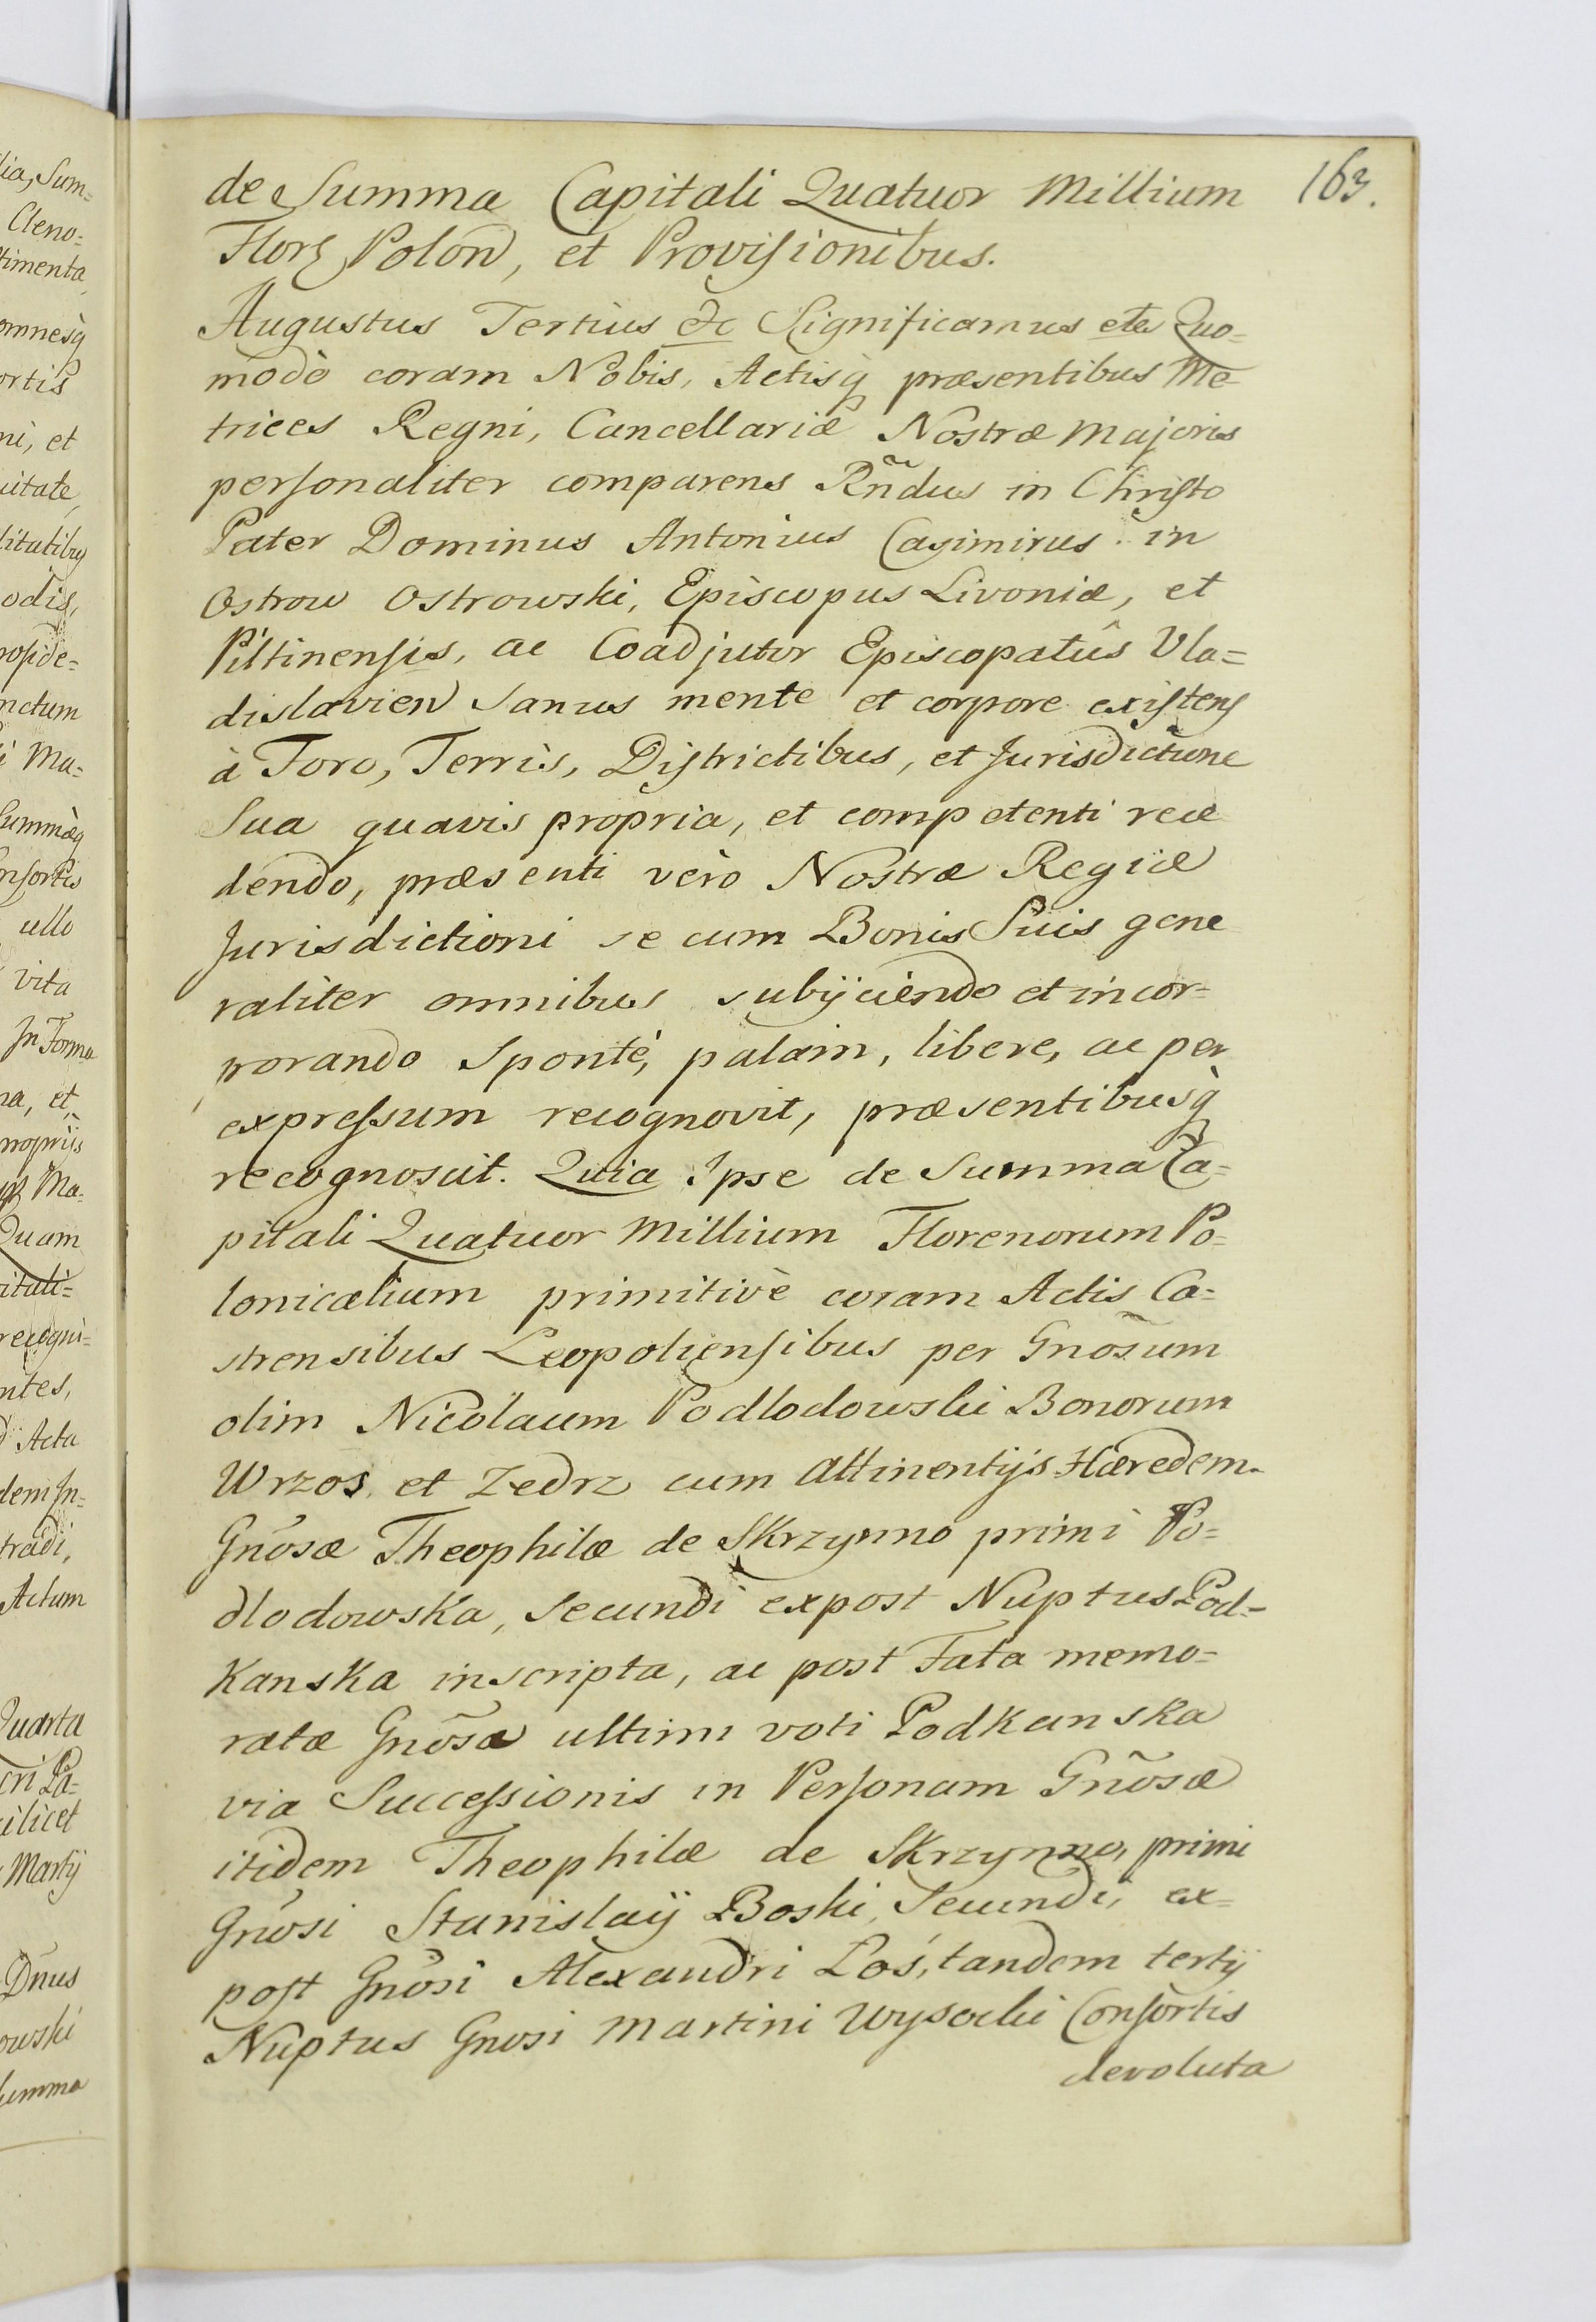 163.
de Summa Capitali Quatuor Millium
Flor Polon, et Provisionibus.
Augustus Tertius &c Significamus etc Quo=
modò coram Nobis, Actisq̀ præsentibus Me=
trices Regni, Cancellariæ Nostræ Majoris
personaliter comparens Rñdus in Christo
Pater Dominus Antonius Casimirus in
Ostrow Ostrowski, Episcopus Livoniæ, et
Piltinensis, ac Coadjutor Episcopatûs Vla=
dislavien Sanus mente et corpore existens
à Foro, Terris, Districtibus, et Jurisdictione
Sua quavis propria, et competenti rece
dendo, præsenti vèro Nostræ Regiæ
Jurisdictioni se cum Bonis Suis gene
raliter omnibus subijciendo et incor=
porando Sponté, palam, libere, ac per
expressum recognovit, præsentibusq̀
recognoscit. Quia Ipse de Summa Ca=
pitali Quatuor Millium Florenorum Po=
lonicalium primitivè coram Actis Ca=
strensibus Leopoliensibus per Gnõsum
olim Nicolaum Podlodowski Bonorum
Wrzos, et Zedrz cum attinentijs Hæredem.
Gnõsæ Theophilæ de Skrzynno primi Po=
dlodowska, Secundi expost Nuptus Pod=
Kanska inscripta, ac post Fata memo=
ratæ Gnõsæ ultimi voti Podkanska
via Successionis in Personam Gnõsæ
itidem Theophilæ de Skrzynno, primi
Gnõsi Stanislaij Boski, Secundi, ex=
post Gnõsi Alexandri Łoś, tandem tertij
Nuptus Gnosi Martini Wysocki Consortis
devoluta